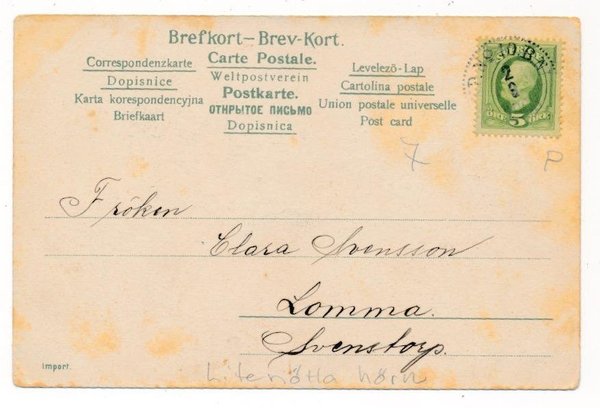 Brefkort–Brev-Kort.
Correspondenzkarte
Dopisnice
Karta korespondencyjna
Briefkaart
Carte Postale.
Weltpostverein
Postkarte.
ОТКРЫТОЕ ПИСЬМО
Dopisnica
Levelező-Lap
Cartolina postale
Union postale universelle
Post card
5
ÖRE
7
P
Fröken
Clara Svensson
Lomma.
Svenstorp.
Import.
hörn